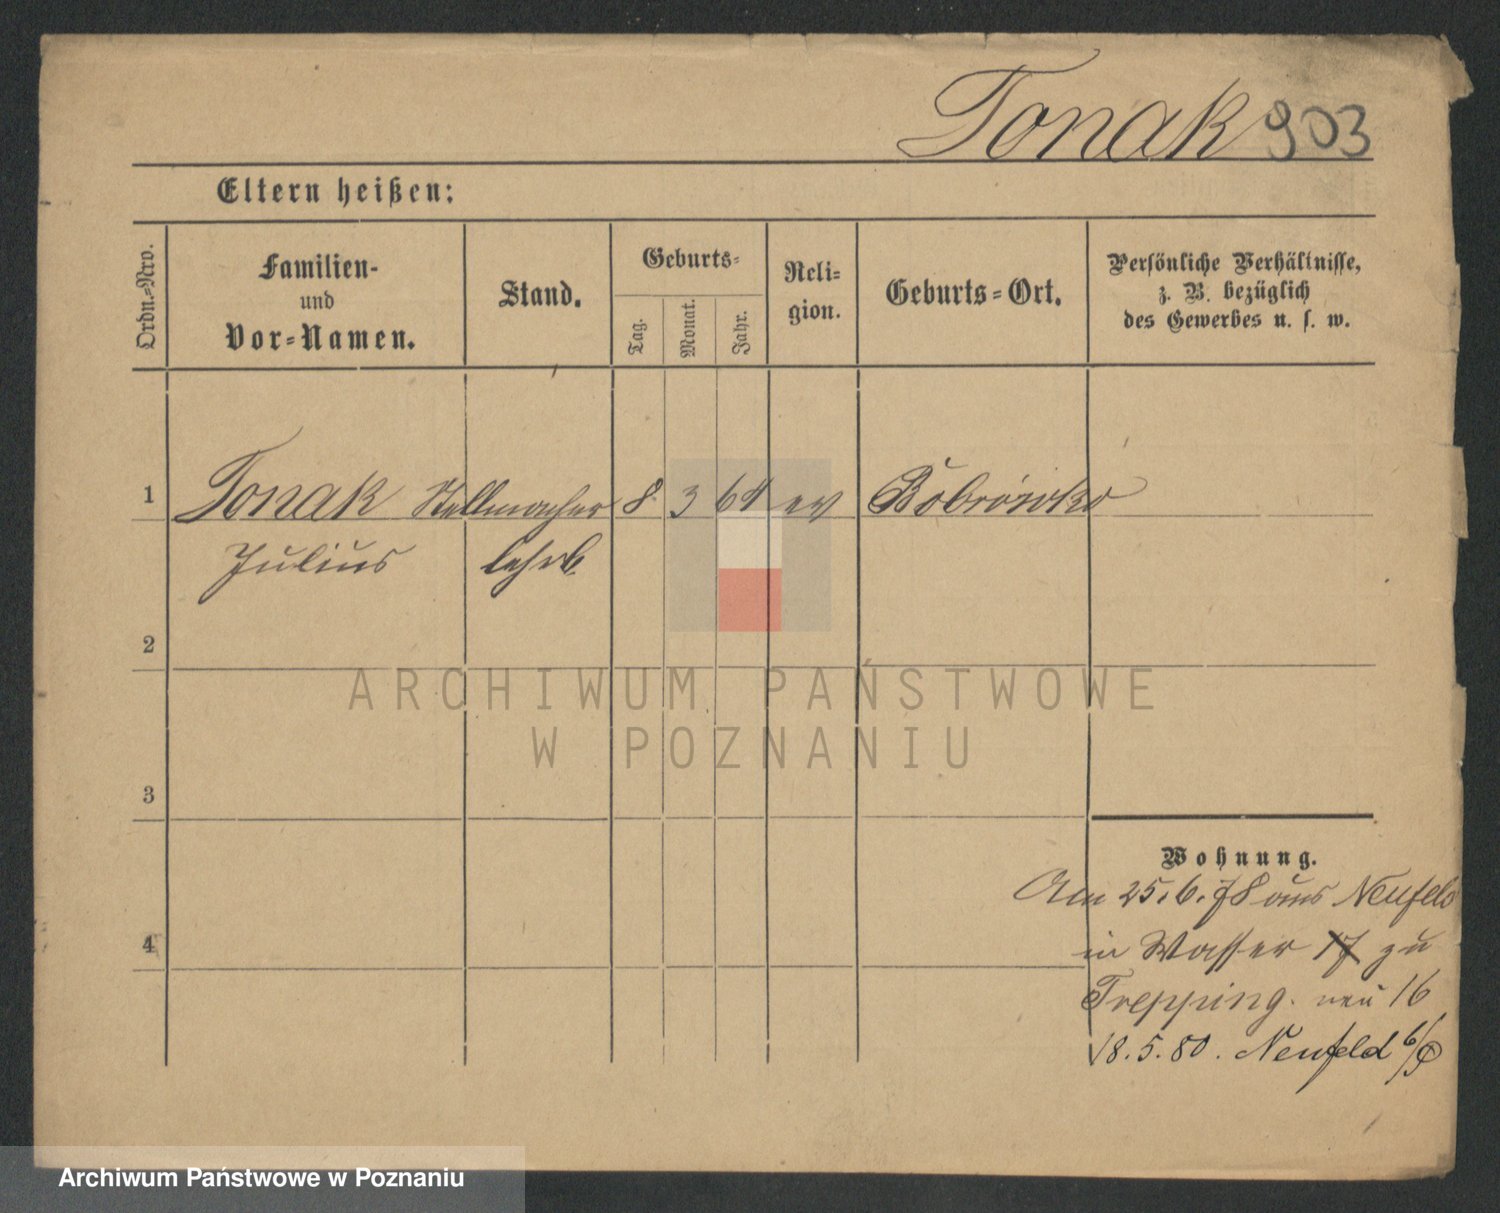 Tonak 903
Eltern heißen:
Ordn.=Nro.
Familien-
und
Vor=Namen.
Stand.
Geburts=
Tag.
Monat.
Jahr.
Reli=
gion.
Geburts=Ort.
Persönliche Verhältnisse,
z. B. bezüglich
des Gewerbes u. s. w.
1 Tonak Stellmacher 8 3 64 ev Bobrówko
Julius lehrb
2
ARCHIWUM PAŃSTWOWE
W POZNANIU
3
Wohnung.
Am 25.6.78 aus Neufeld
4 in Wasser 17 zu
Trepping. neu 16
18.5.80. Neufeld
Archiwum Państwowe w Poznaniu